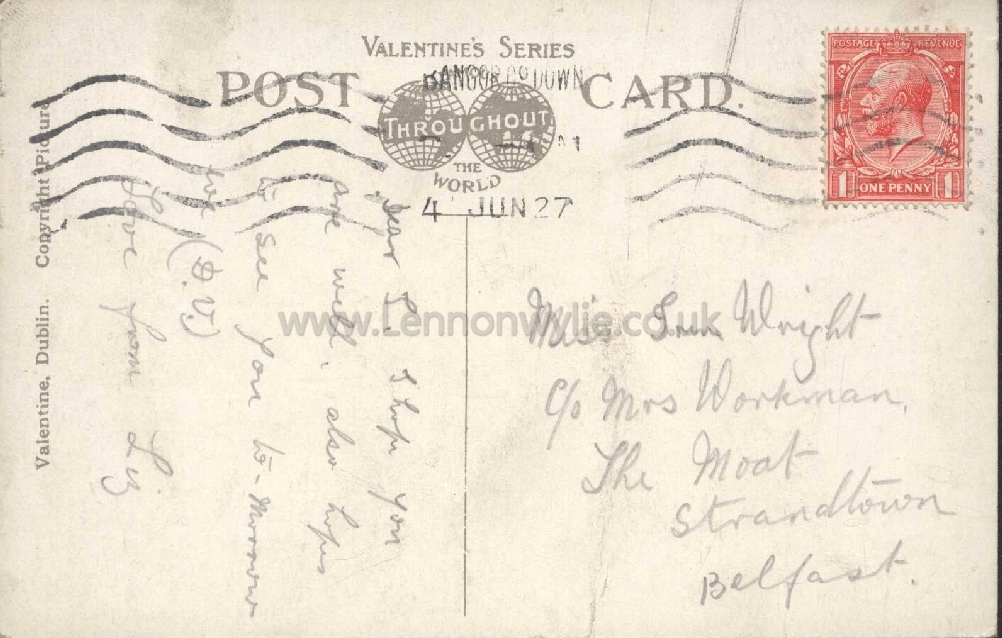 VALENTINE'S SERIES
POST CARD.
BANGOR Co DOWN
THROUGHOUT
THE
WORLD
4 JUN 27
POSTAGE REVENUE
1 ONE PENNY 1
Copyright Picture
Valentine, Dublin.
Dear S. I hope you
are well. also hopes
to see you to-morrow
(D.V.)
Love from Liz
Miss Wright
c/o Mrs Workman,
The Moat
Strandtown
Belfast.
www.Lennonwylie.co.uk